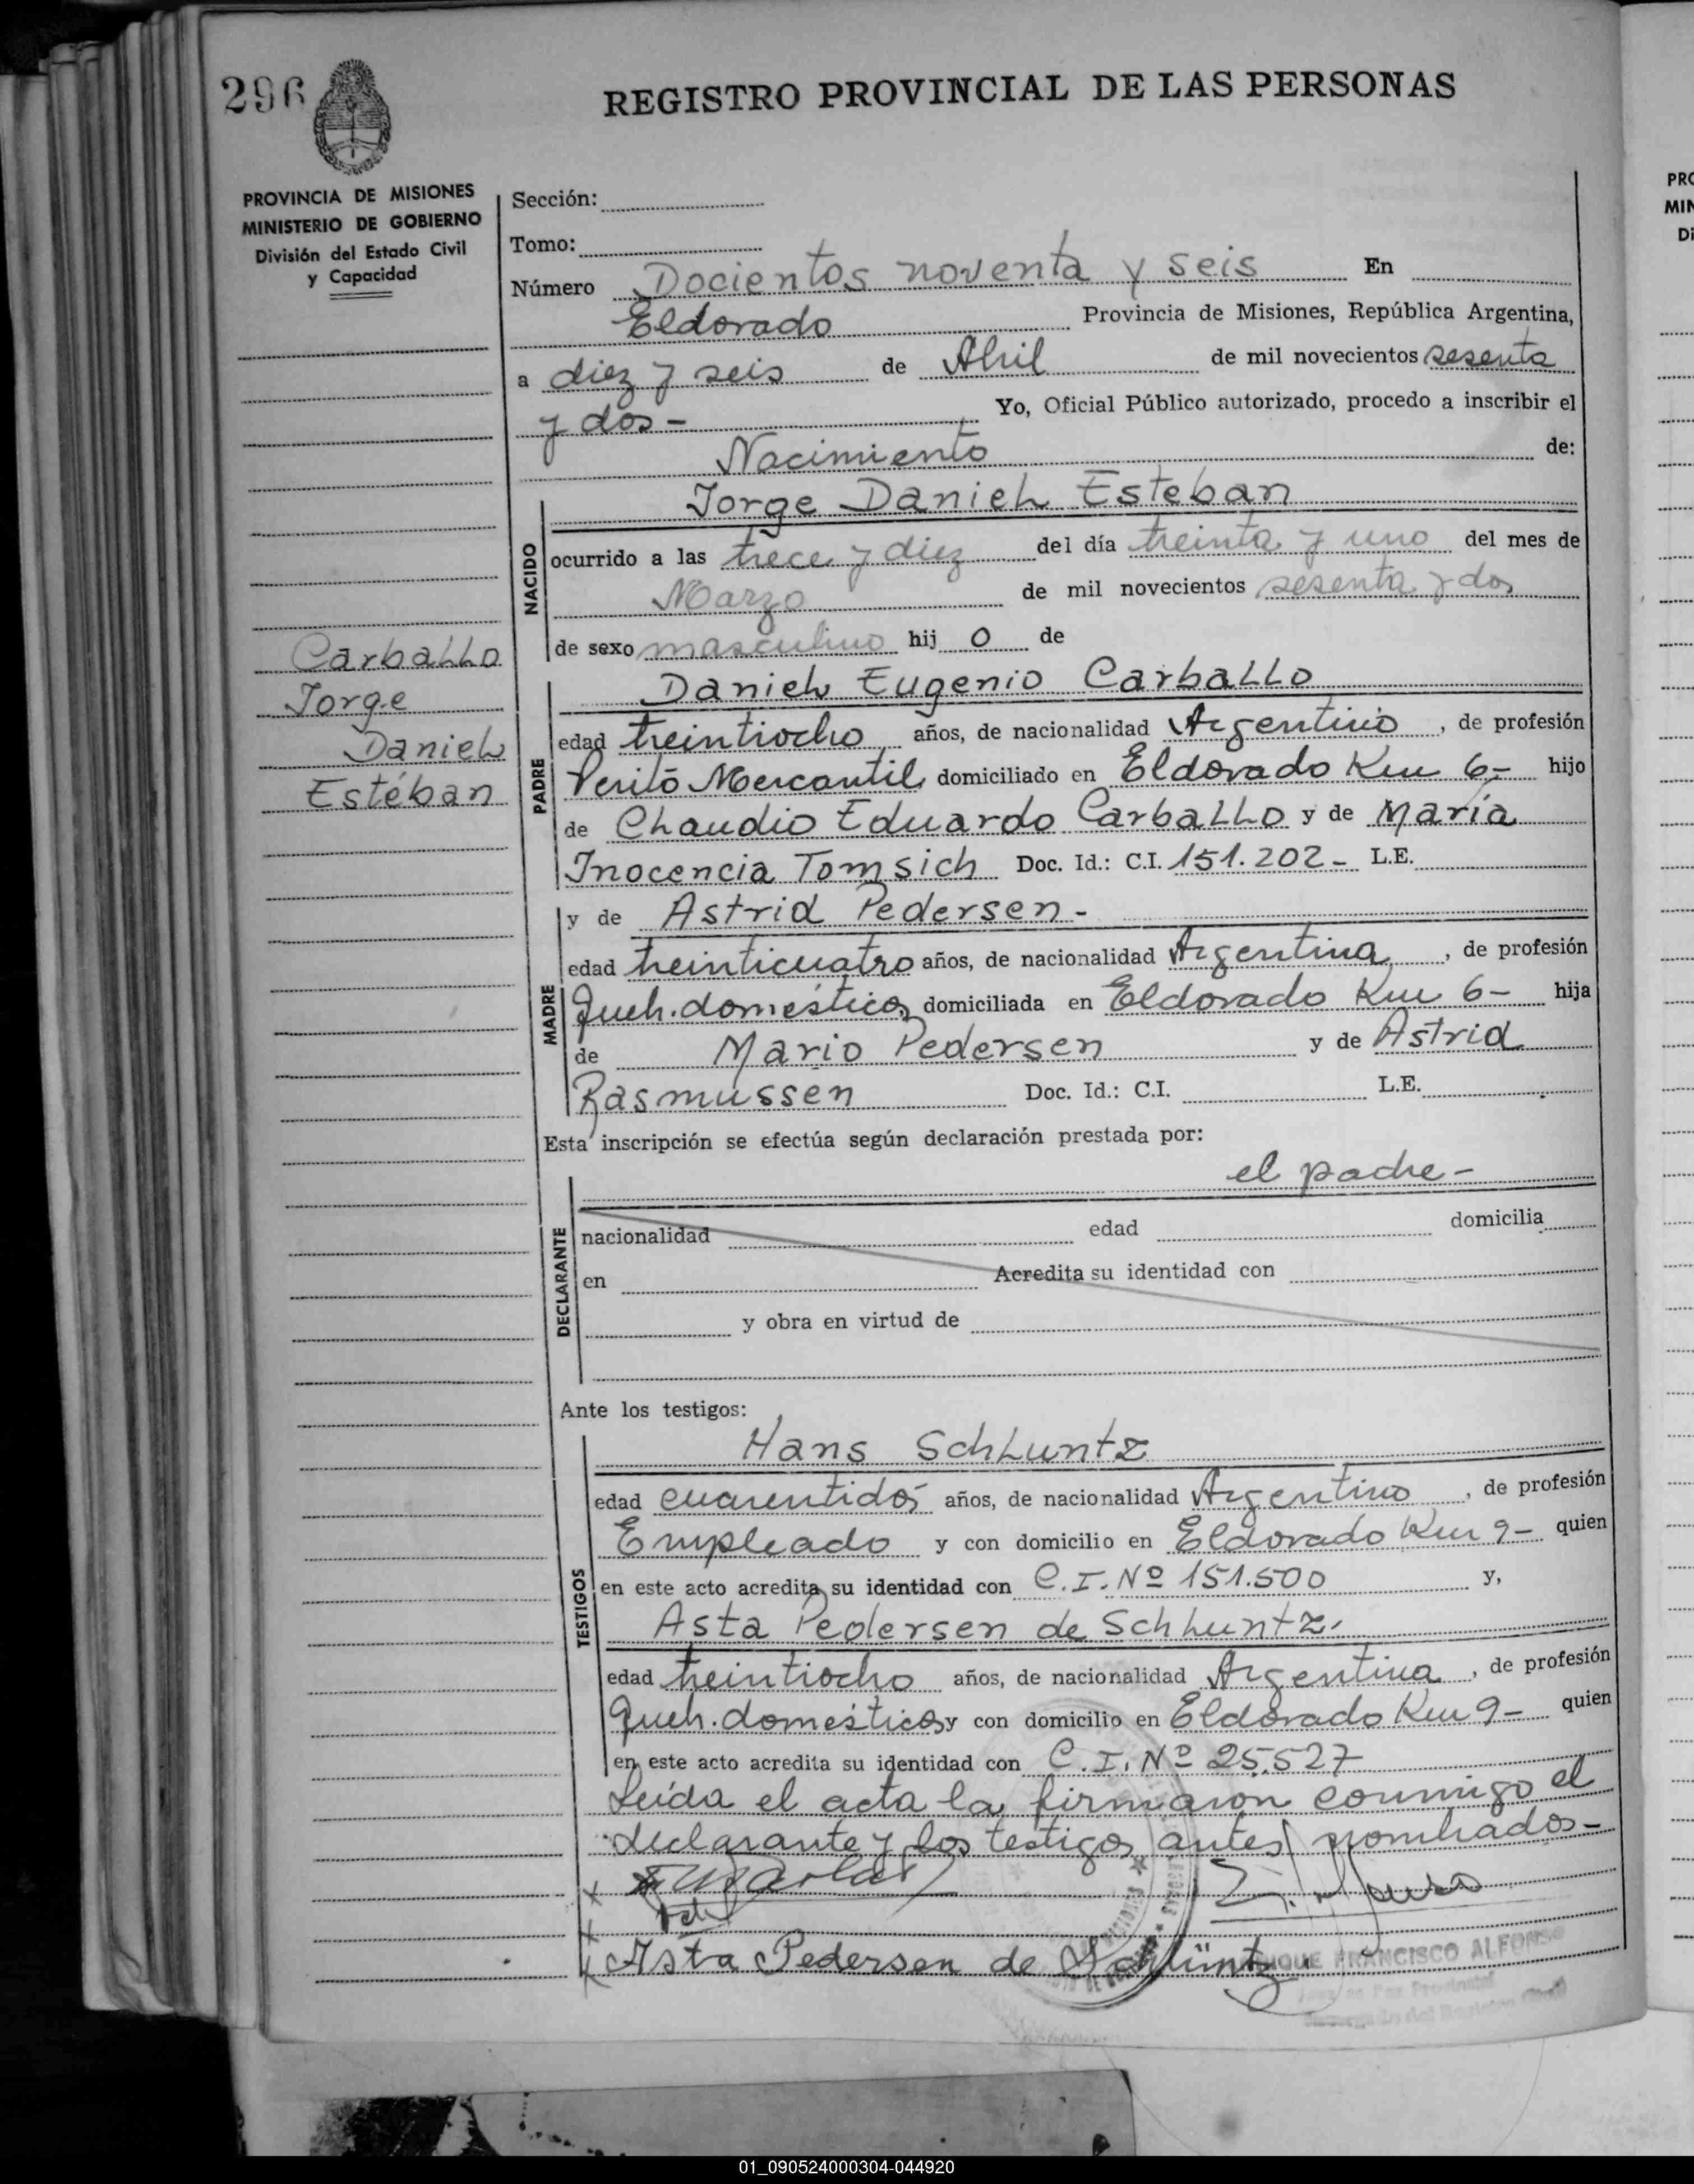 296
REGISTRO PROVINCIAL DE LAS PERSONAS
PROVINCIA DE MISIONES
MINISTERIO DE GOBIERNO
División del Estado Civil
y Capacidad
Carballo
Jorge
Daniel
Estéban
Sección:
Tomo:
Número Docientos noventa y seis En
Eldorado Provincia de Misiones, República Argentina,
a diez y seis de Abril de mil novecientos sesenta
y dos - Yo, Oficial Público autorizado, procedo a inscribir el
Nacimiento de:
NACIDO
Jorge Daniel Esteban
ocurrido a las trece y diez del día treinta y uno del mes de
Marzo de mil novecientos sesenta y dos
de sexo masculino hij o de
PADRE
Daniel Eugenio Carballo
edad treintiocho años, de nacionalidad Argentino, de profesión
Perito Mercantil domiciliado en Eldorado Km 6- hijo
de Claudio Eduardo Carballo y de María
Inocencia Tomsich Doc. Id.: C.I. 151.202- L.E.
MADRE
y de Astrid Pedersen-
edad treinticuatro años, de nacionalidad Argentina, de profesión
Queh. domésticos domiciliada en Eldorado Km 6- hija
de Mario Pedersen y de Astrid
Rasmussen Doc. Id.: C.I. L.E.
Esta inscripción se efectúa según declaración prestada por:
DECLARANTE
el padre-
nacionalidad edad domicilia
en Acredita su identidad con
y obra en virtud de
Ante los testigos:
TESTIGOS
Hans Schluntz
edad cuarentidós años, de nacionalidad Argentino, de profesión
Empleado y con domicilio en Eldorado Km 9- quien
en este acto acredita su identidad con C.I. Nº 151.500 y,
Asta Pedersen de Schluntz.
edad treintiocho años, de nacionalidad Argentina, de profesión
Queh. domésticos y con domicilio en Eldorado Km 9- quien
en este acto acredita su identidad con C.I. Nº 25.527
Leída el acta la firmaron conmigo el
declarante y los testigos antes nombrados-
Asta Pedersen de Schlüntz.
FRANCISCO ALFONSO
01_090524000304-044920